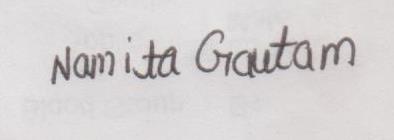 Namita Gautam